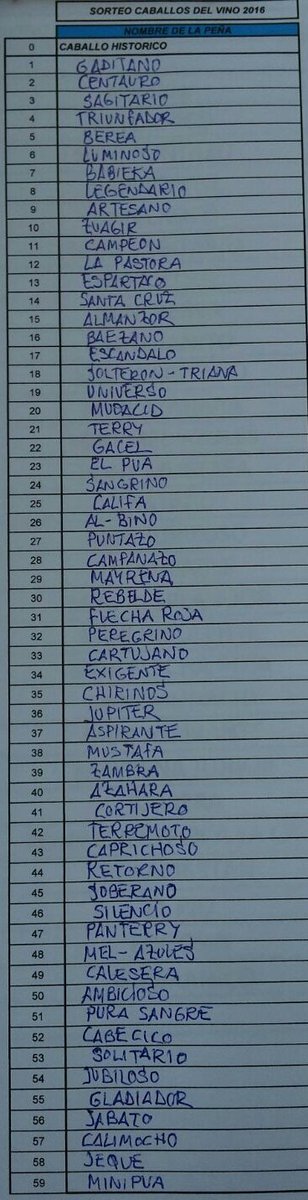 SORTEO CABALLOS DEL VINO 2016
NOMBRE DE LA PEÑA
0 CABALLO HISTORICO
1 GADITANO
2 CENTAURO
3 SAGITARIO
4 TRIUNFADOR
5 BEREA
6 LUMINOSO
7 BABIEKA
8 LEGENDARIO
9 ARTESANO
10 ZUAGIR
11 CAMPEON
12 LA PASTORA
13 ESPARTACO
14 SANTA CRUZ
15 ALMANZOR
16 BAEZANO
17 ESCANDALO
18 SOLTERON-TRIANA
19 UNIVERSO
20 MUDACID
21 TERRY
22 GACEL
23 EL PUA
24 SANGRINO
25 CALIFA
26 AL-BINO
27 PUNTAZO
28 CAMPANAZO
29 MAYRENA
30 REBELDE
31 FLECHA ROJA
32 PEREGRINO
33 CARTUJANO
34 EXIGENTE
35 CHIRINOS
36 JUPITER
37 ASPIRANTE
38 MUSTAFA
39 ZAMBRA
40 AZAHARA
41 CORTIJERO
42 TERREMOTO
43 CAPRICHOSO
44 RETORNO
45 SOBERANO
46 SILENCIO
47 PANTERRY
48 MEL-AZULES
49 CALESERA
50 AMBICIOSO
51 PURA SANGRE
52 CABECICO
53 SOLITARIO
54 JUBILOSO
55 GLADIADOR
56 JABATO
57 CALIMOCHO
58 JEQUE
59 MINIPUA